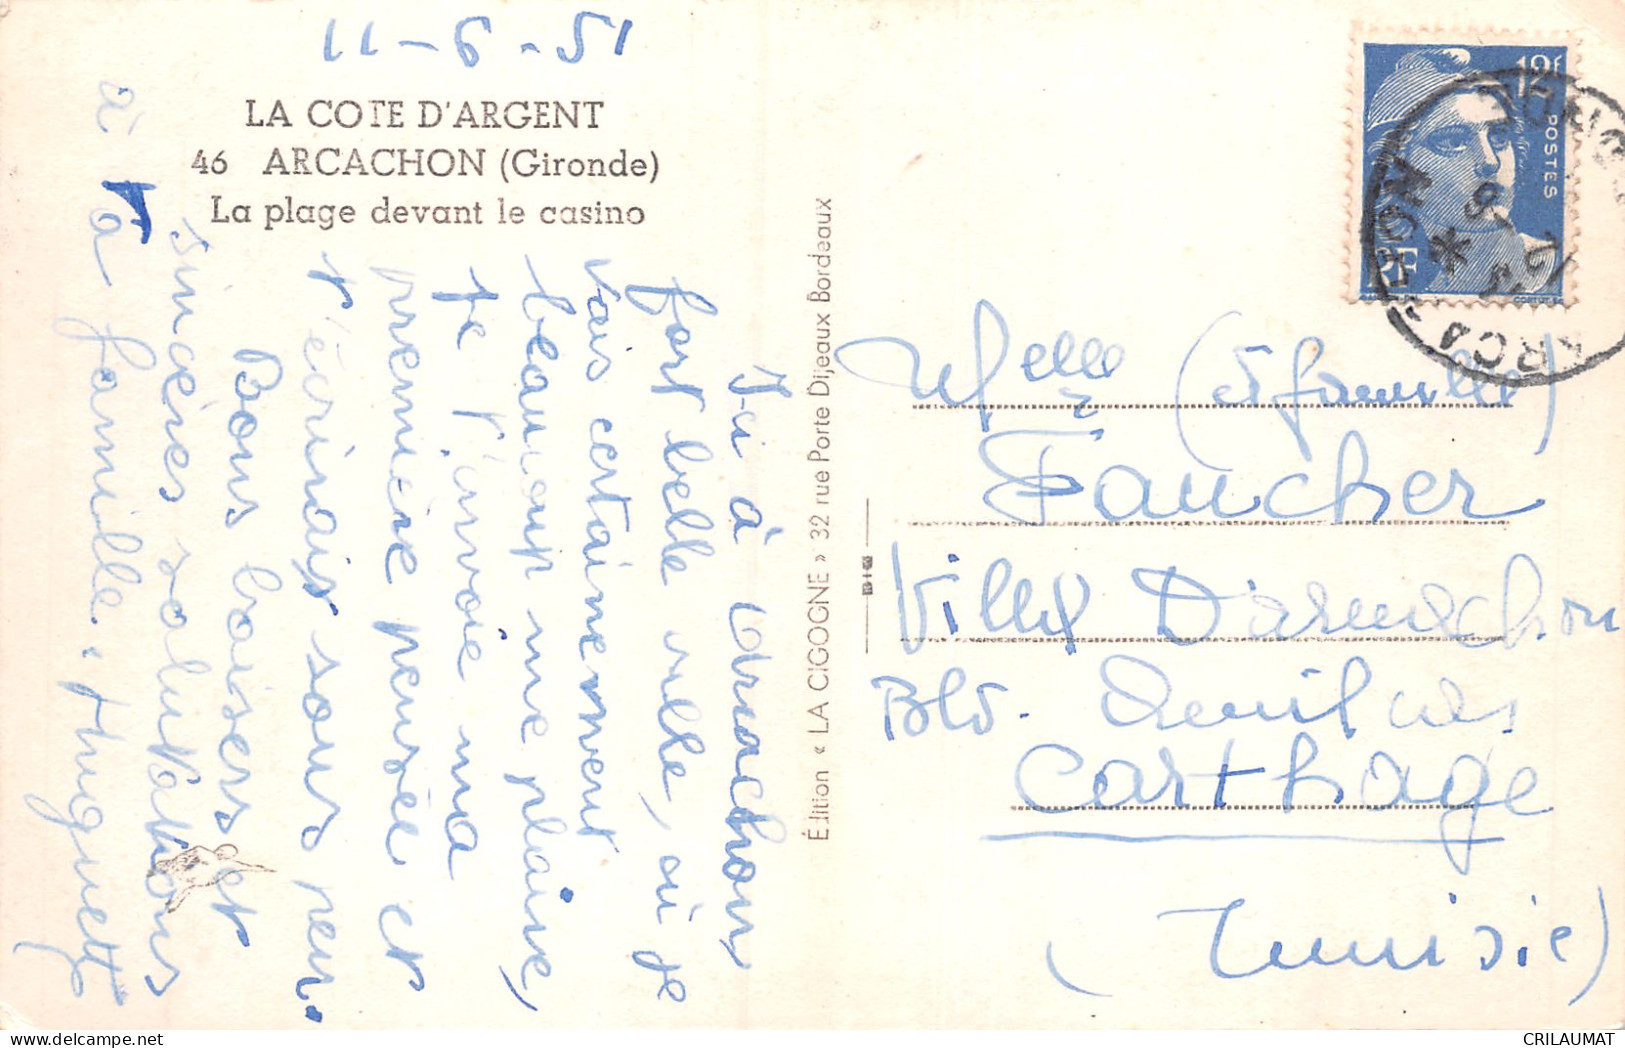 11-6-51
LA COTE D'ARGENT
46 ARCACHON (Gironde)
La plage devant le casino
Ici à Arcachon,
fort belle ville, où je
vais certainement
beaucoup me plaire,
je t'envoie ma
première pensée et
t'écrirais sous peu.
Bons baisers et
sincères salutations
à ta famille. Huguette
Édition « LA CIGOGNE » 32 rue Porte Dijeaux Bordeaux
12F
POSTES
RF
Melle (& famille)
Faucher
Villa
Bld.
Carthage
(Tunisie)
CRILAUMAT